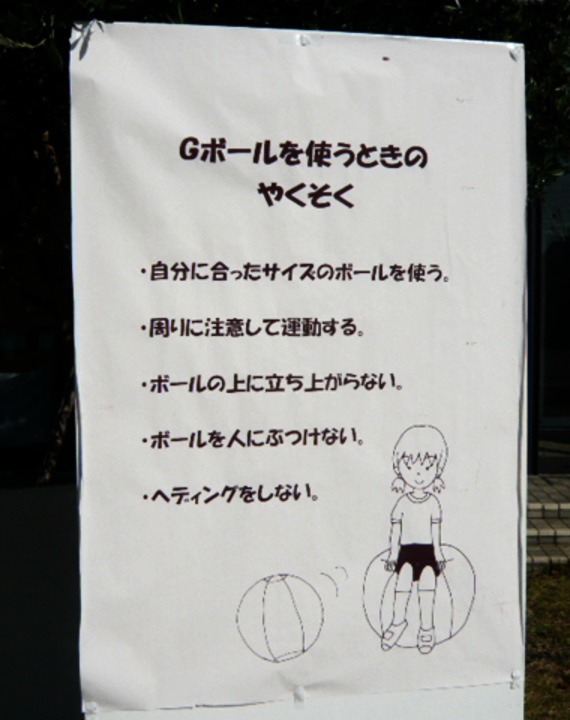 Gボールを使うときの
やくそく
・自分に合ったサイズのボールを使う。
・周りに注意して運動する。
・ボールの上に立ち上がらない。
・ボールを人にぶつけない。
・ヘディングをしない。